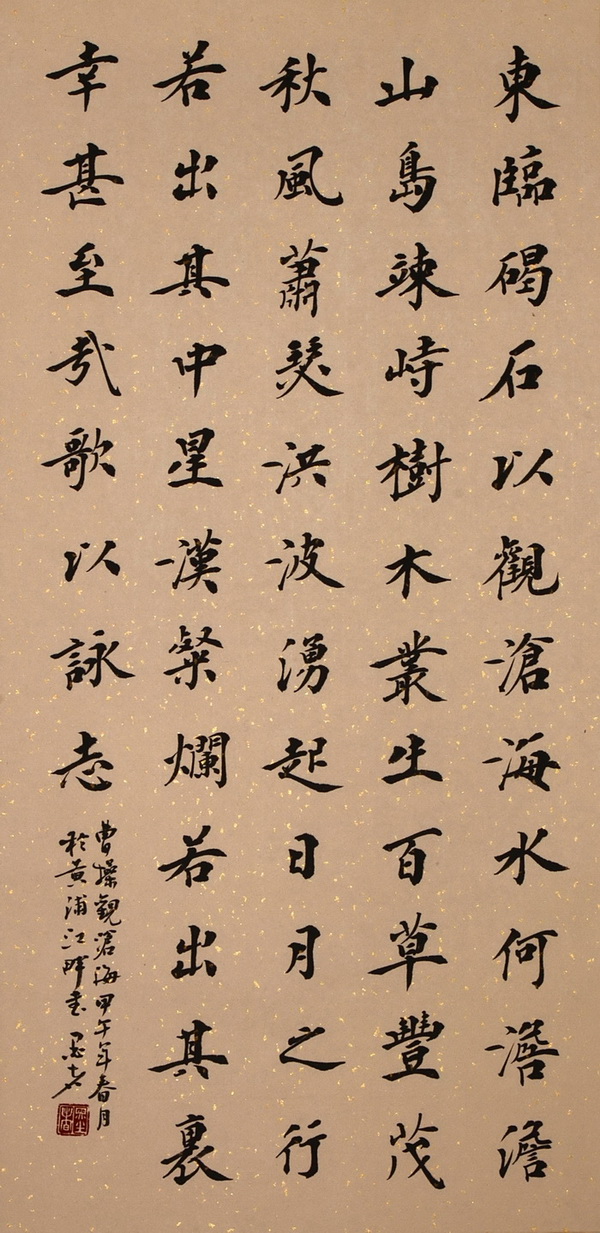 東臨碣石以觀滄海水何澹澹
山島竦峙樹木叢生百草豐茂
秋風蕭瑟洪波湧起日月之行
若出其中星漢粲爛若出其裏
幸甚至哉歌以詠志
曹操觀滄海甲午年春月
於黄浦江畔書